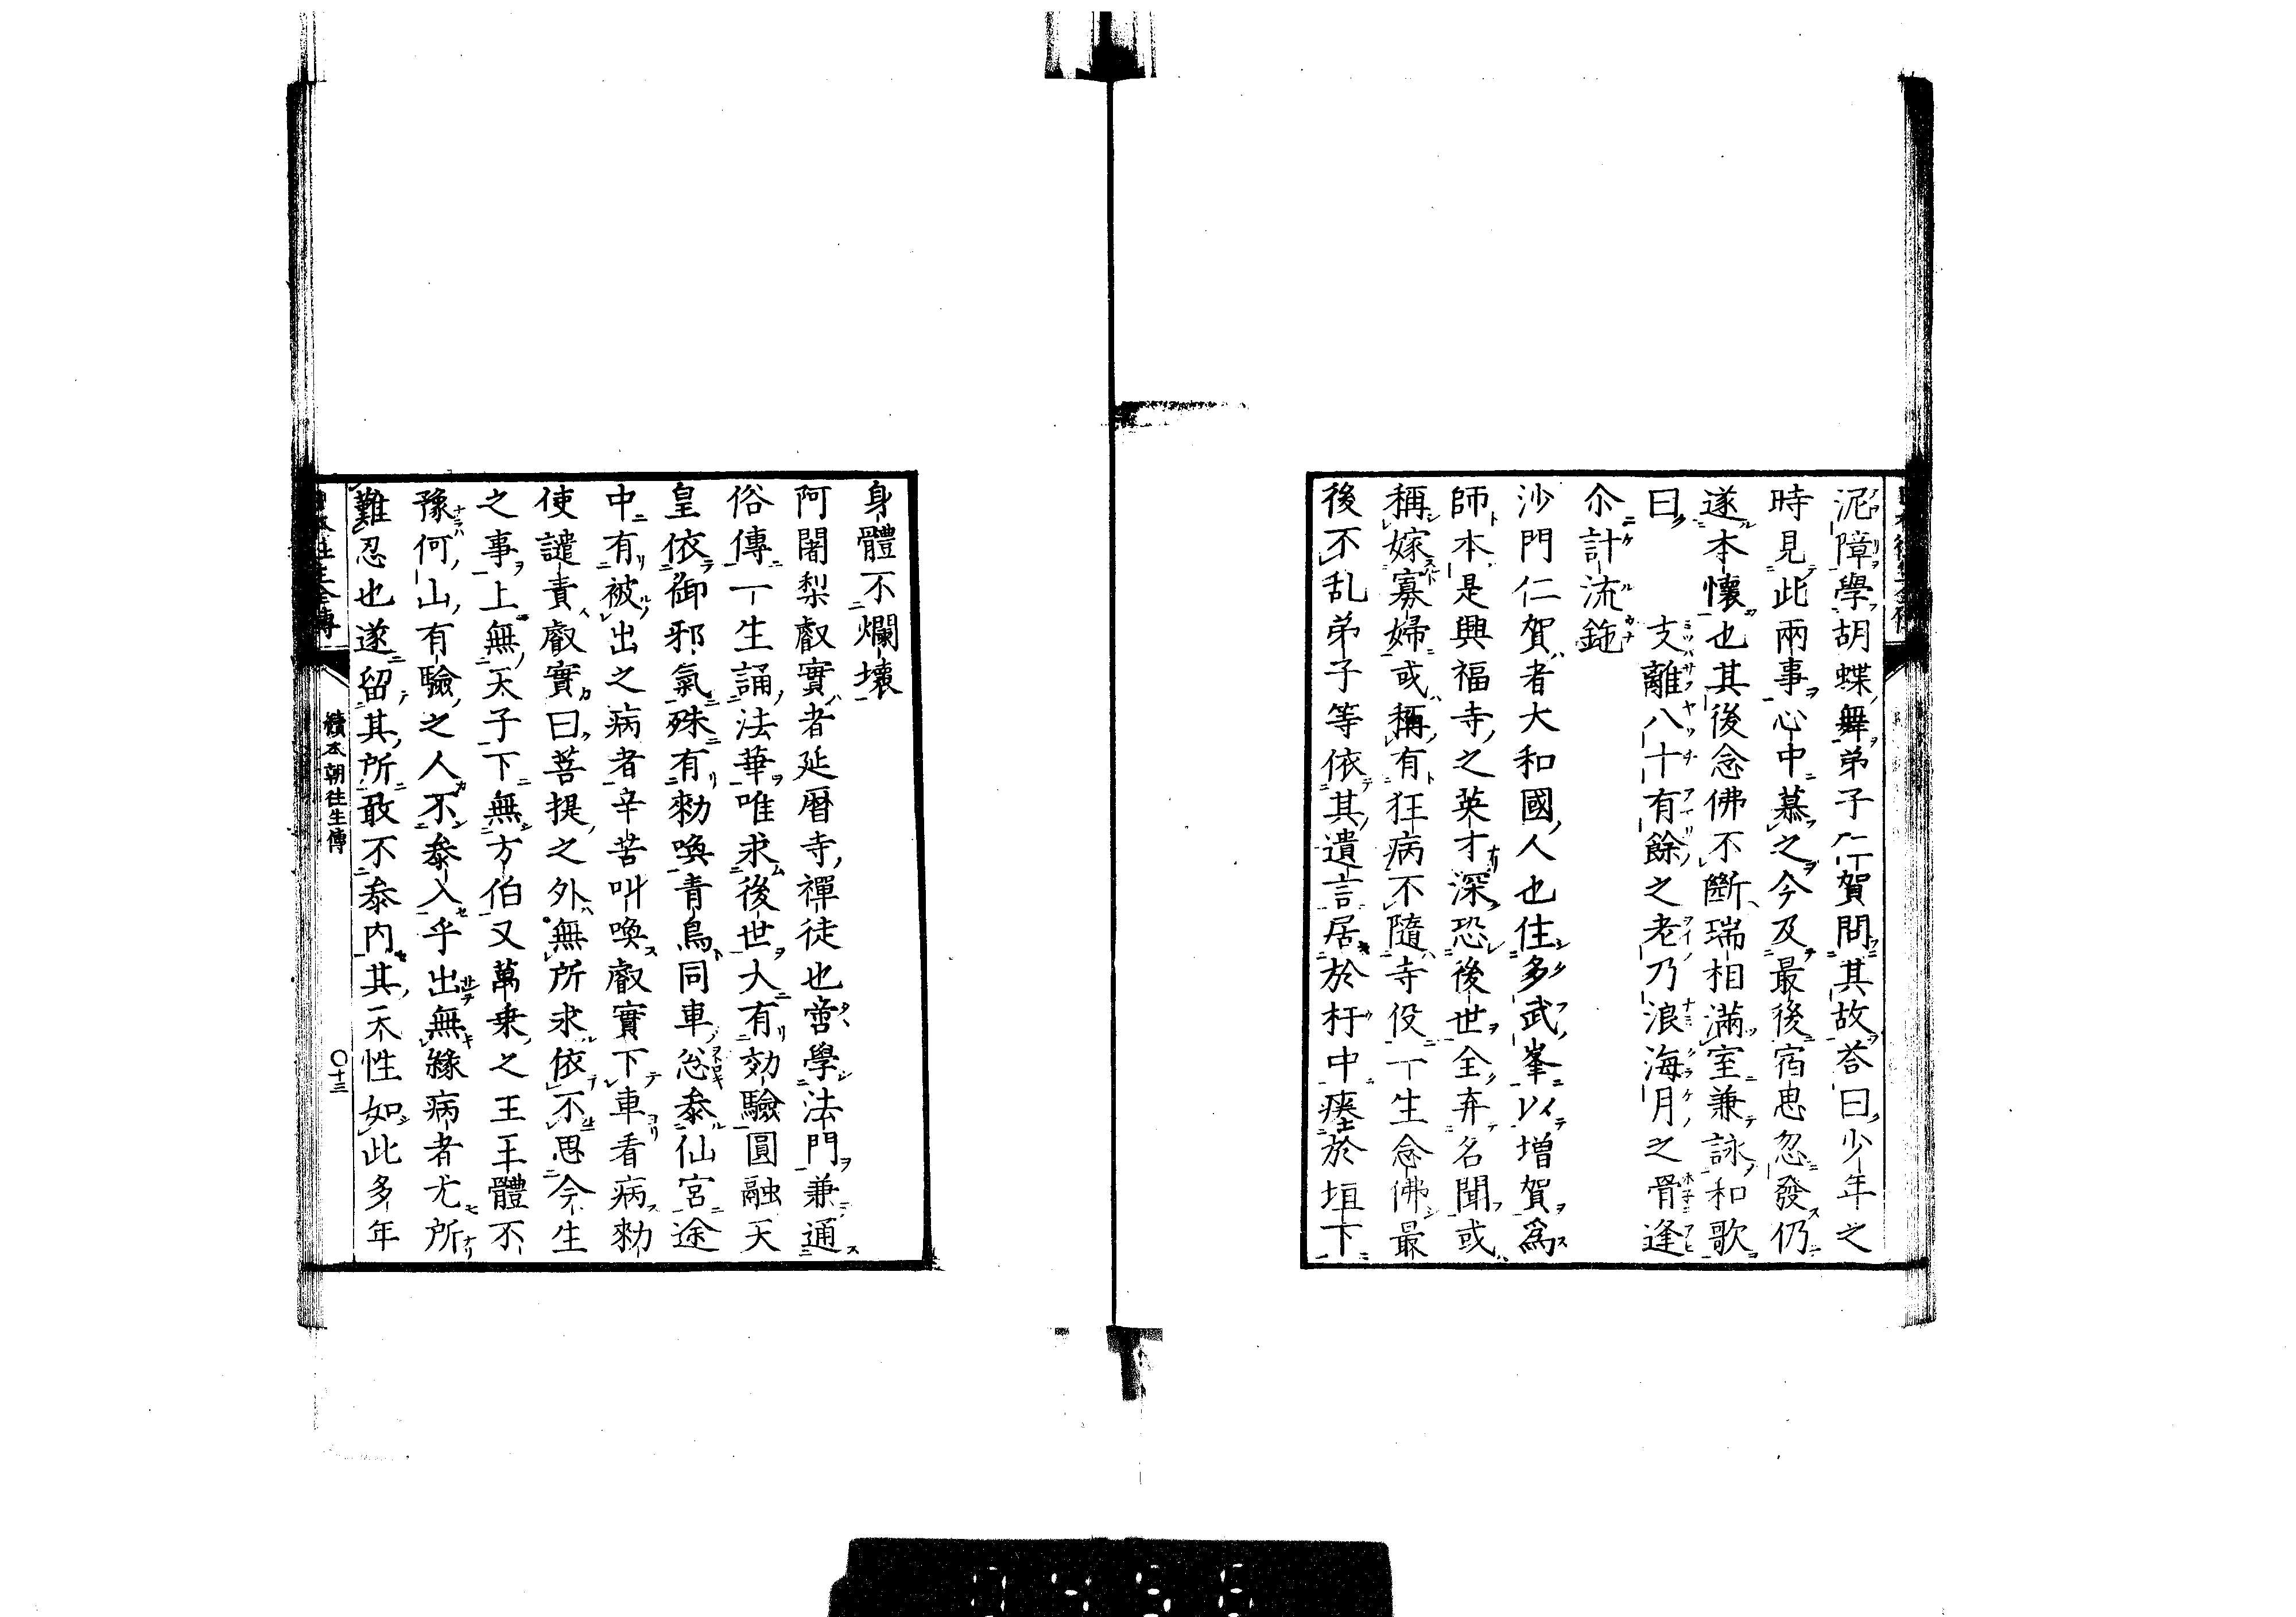 泥障學胡蝶舞弟子仁賀問其故荅曰少年之
時見此兩事心中慕之今及最後宿思忽發仍
遂本懷也其後念佛不斷瑞相滿室兼詠和歌
曰　支離八十有餘之老乃浪海月之骨逢
尒計流鉇
沙門仁賀者大和國人也住多武峯以增賀爲
師本是興福寺之英才深恐後世全弃名聞或
稱嫁寡婦或稱有狂病不隨寺役一生念佛最
後不乱弟子等依其遺言居於杅中瘞於垣下
身體不爛壞
阿闍梨叡實者延暦寺禪徒也嘗學法門兼通
俗傳一生誦法華唯求後世大有効驗圓融天
皇依御邪氣殊有勅喚青鳥同車忩叅仙宮途
中有被出之病者辛苦叫喚叡實下車看病勅
使譴責叡實曰菩提之外無所求依不思今生
之事上無天子下無方伯又萬乗之王玉體不
豫何山有驗之人不叅入乎出無緣病者尤所
難忍也遂留其所敢不叅内其天性如此多年
續本朝往生傳
〇十三